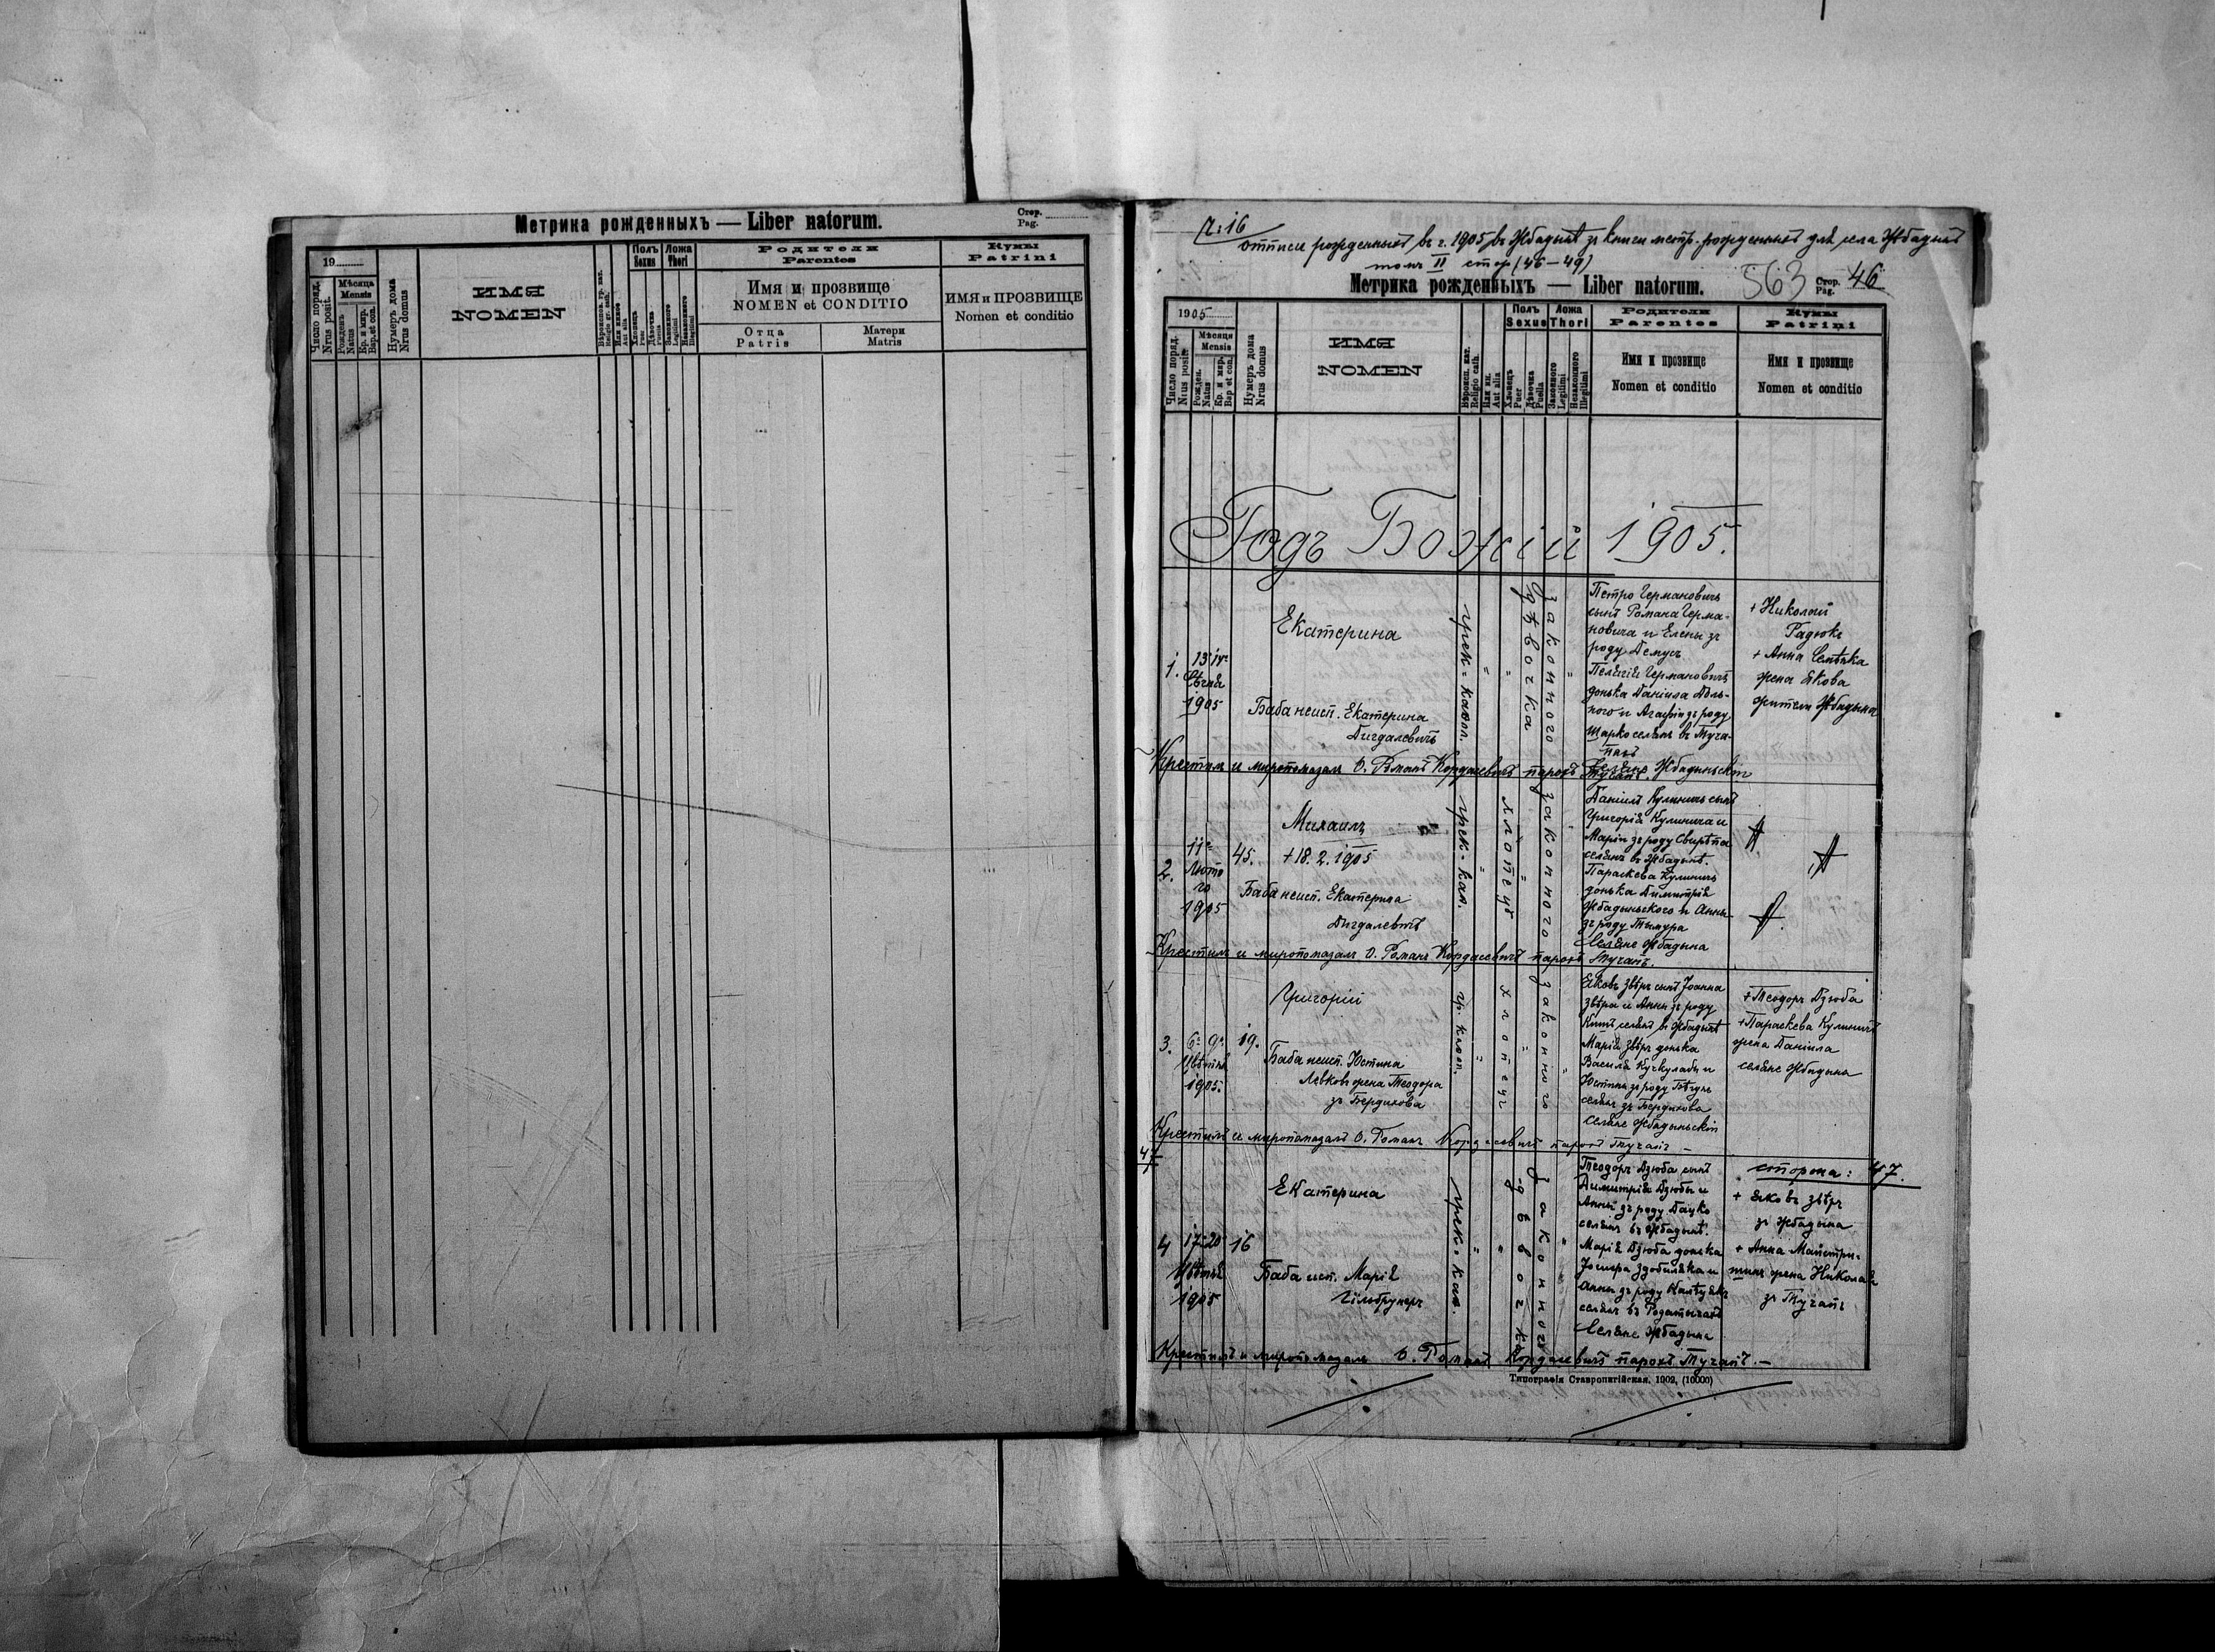 Метрика рожденныхъ — Liber natorum.
Стор.
Pag.
19
Число поряд.
Nrus posit.
Мѣсяца
Mensis
Рожденъ
Natus
Кр. и мѵр.
Bap. et con.
Нумеръ дома
Nrus domus
ИМЯ
NOMEN
Полъ
Sexus
Ложа
Thori
Родители
Parentes
Имя и прозвище
NOMEN et CONDITIO
Отца
Patris
Матери
Matris
Кумы
Patrini
ИМЯ и ПРОЗВИЩЕ
Nomen et conditio
Ч: 16
отписи рожденныхъ въ г. 1905 въ Жбадынѣ зъ книги метр. рожденныхъ для села Жбадынѣ
томъ II стор (46–49)
Метрика рожденныхъ — Liber natorum.
563
Стор.
Pag.
46
1905
Число поряд.
Nrus posit.
Мѣсяца
Mensis
Рожден.
Natus
Кр. и мѵр.
Bap et con.
Нумеръ дома
Nrus domus
ИМЯ
NOMEN
Вѣроисп. кат.
Religio cath.
Или ин.
Aut alia
Полъ
Sexus
Хлопецъ
Puer
Дѣвочка
Puella
Ложа
Thori
Законного
Legitimi
Незаконного
Illegitimi
Родители
Parentes
Имя и прозвище
Nomen et conditio
Кумы
Patrini
Имя и прозвище
Nomen et conditio
Годъ Божій 1905.
1.
13
1905
Екатерина
Баба неисп. Екатерина
Дигдалевичъ
грек-каѳол.
дѣвочка
законного
Петро Германовичъ
сынъ Романа Герма-
новича и Елены зъ
роду Демусъ
Пелагія Германовичъ
донька Даніила
и Агафіи зъ роду
Шарко селянъ въ Туча-
пахъ
Селяне Жбадыньскіи
+ Николай
Радюкъ
+ Анна
жена Якова
жители Жбадына
Крестилъ и миропомазалъ О. Романъ Кордасевичъ парохъ Тучапъ.
2.
11
Люто
го
1905
45.
Михаилъ
+ 18. 2. 1905
Баба неисп. Екатерина
Дигдалевичъ
грек-кат.
хлопецъ
законного
Даніилъ Кулиничъ сынъ
Григорія Кулинича и
Маріи зъ роду
селянъ въ Жбадынѣ.
Параскева Кулиничъ
донька Димитрія
Жбадыньского и Анны
зъ роду Тымура
Селяне Жбадына
Крестилъ и миропомазалъ О. Романъ Кордасевичъ парохъ Тучапъ.
3.
6. 9.
Цвѣтня
1905.
19.
Григорій
Баба неисп. Юстина
Левковъ жена Теодора
зъ Бердихова
гр. каѳол.
хлопецъ
законного
Яковъ Звѣръ сынъ Іоанна
Звѣра и Анны зъ роду
Китъ селянъ въ Жбадынѣ
Марія Звѣръ донька
Василя и
Юстины зъ роду
селянъ зъ Бердихова
селяне Жбадыньскіи
+ Теодоръ Дзюба
+ Параскева Кулиничъ
жена Даніила
селяне Жбадына
Крестилъ и миропомазалъ О. Романъ Кордасевичъ парохъ Тучапъ –
47
сторона: 47.
4
17 20
Цвѣтня
1905
16
Екатерина
Баба исп. Марія
Гільбрунеръ
грек-кат.
дѣвочка
законного
Теодоръ Дзюба сынъ
Димитрія Дзюбы и
Анны зъ роду Дацко
селянъ въ Жбадынѣ.
Марія Дзюба донька
Іосифа Здобыляка и
Анны зъ роду
селянъ въ Родатычахъ
Селяне Жбадына
+ Яковъ Звѣръ
зъ Жбадына
+ Анна Майстри-
шинъ жена Николая
зъ Тучапъ
Крестилъ и миропомазалъ О. Романъ Кордасевичъ парохъ Тучапъ. –
Типографія Ставропигійская. 1902, (10000)